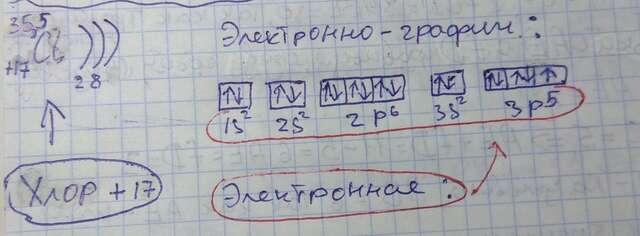 35,5
Cl )))
+17
2 8
Электронно-графич.:
↑↓ ↑↓ ↑↓ ↑↓ ↑↓ ↑↓ ↑↓ ↑↓ ↑
1s² 2s² 2p⁶ 3s² 3p⁵
Хлор +17
Электронная: